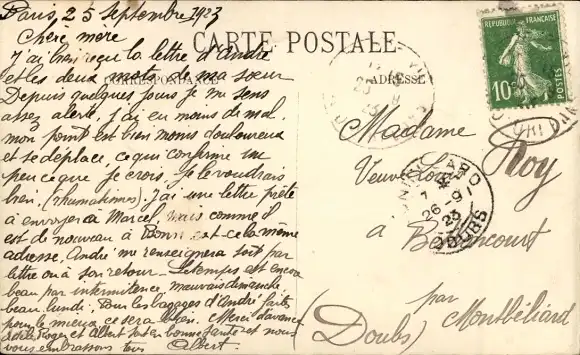 Paris, 25 Septembre 1923
Chère mère
J'ai bien reçu la lettre d'André
et les deux mots de ma sœur
Depuis quelques jours je me sens
assez alerte, j'ai eu moins de mal,
mon point est bien moins douloureux
et se déplace, ce qui confirme un
peu ce que je crois. Je le voudrais
bien, (rhumatismes). J'ai une lettre prête
à envoyer à Marcel, mais comme il
est de nouveau à est-ce la même
adresse, André me renseignera soit par
lettre ou à son retour — Le temps est encore
beau par intermittence, mauvais dimanche,
beau lundi. Tous les bagages d'André faits,
pour le mieux ce sera bien. Merci d'avance
Roger et Albert sont en bonne santé et nous
vous embrassons tous Albert
CARTE POSTALE
CORRESPONDANCE
ADRESSE
Madame
Veuve Roy
à
par Montbéliard
(Doubs)
REPUBLIQUE FRANÇAISE
10
POSTES
26-9
23
DOUBS